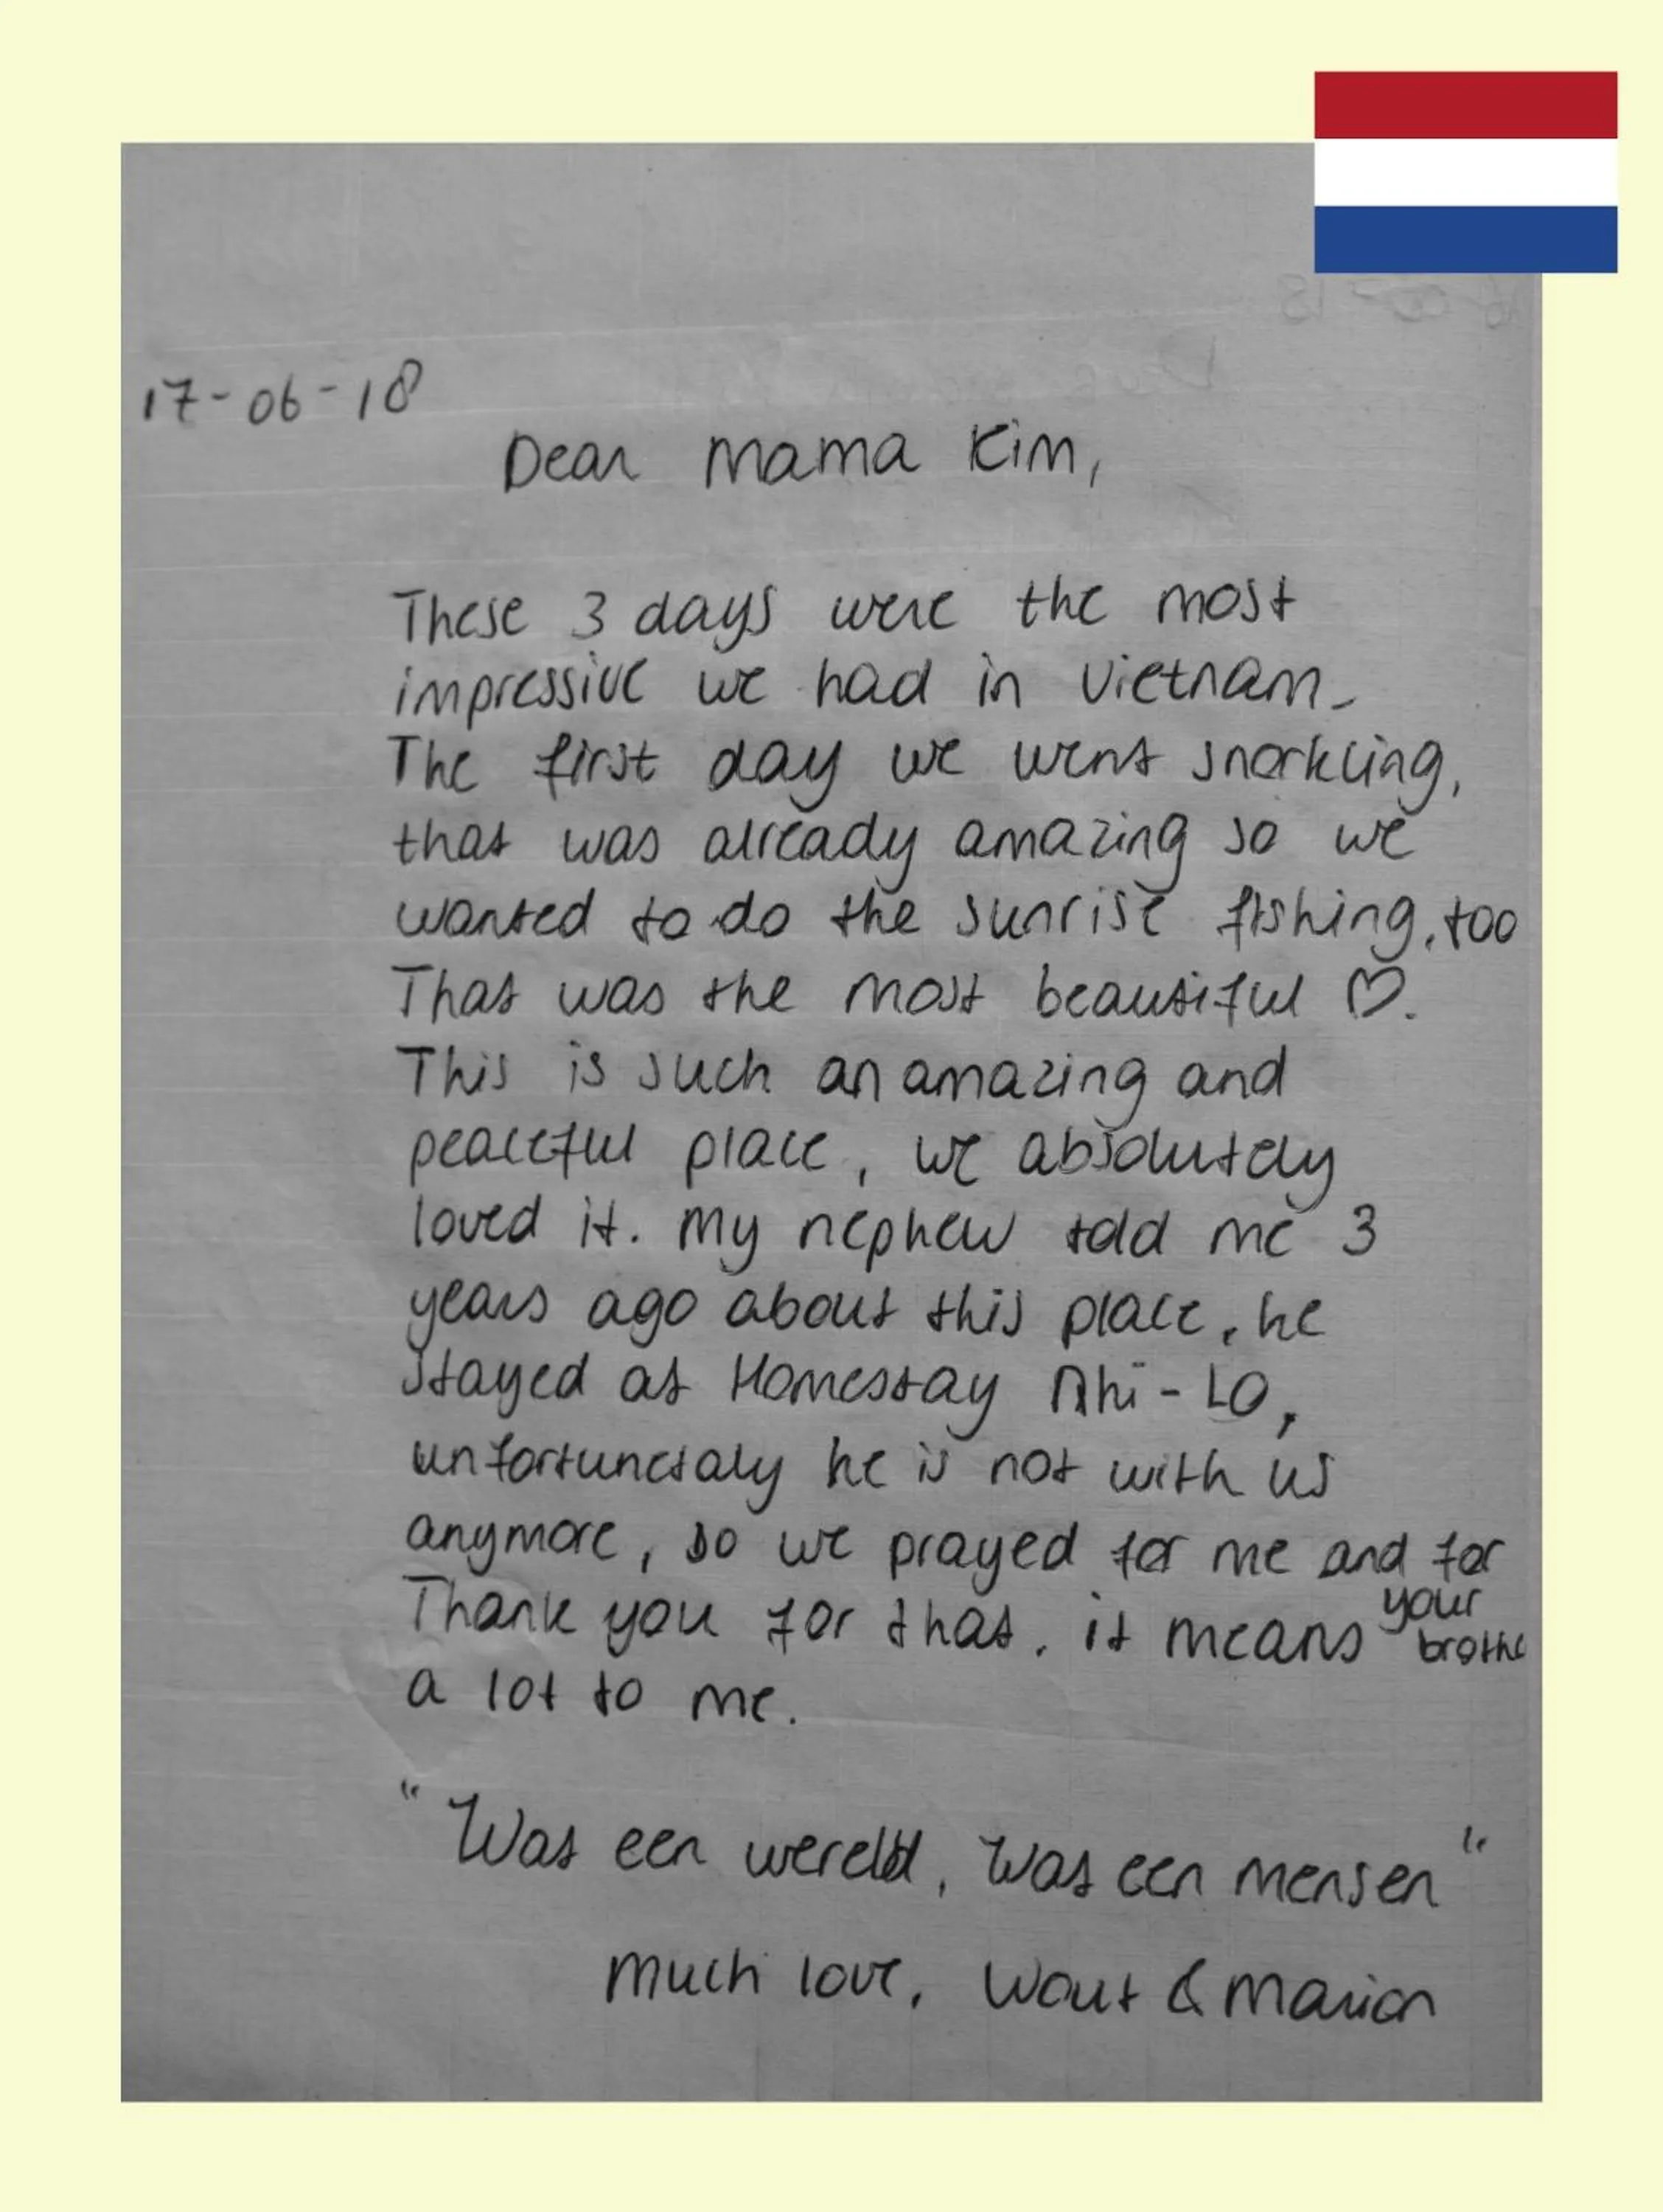 17-06-18
Dear Mama Kim,
These 3 days were the most
impressive we had in Vietnam.
The first day we went snorkling,
that was already amazing so we
wanted to do the sunrise fishing, too
That was the most beautiful ♡.
This is such an amazing and
peaceful place, we absolutely
loved it. My nephew told me 3
years ago about this place, he
stayed at Homestay Nhi-LO,
unfortunetaly he is not with us
anymore, so we prayed for me and for
your
Thank you for that. it means brothe
a lot to me.
"Was een wereld, was een mensen"
Much love, Wout & Marion